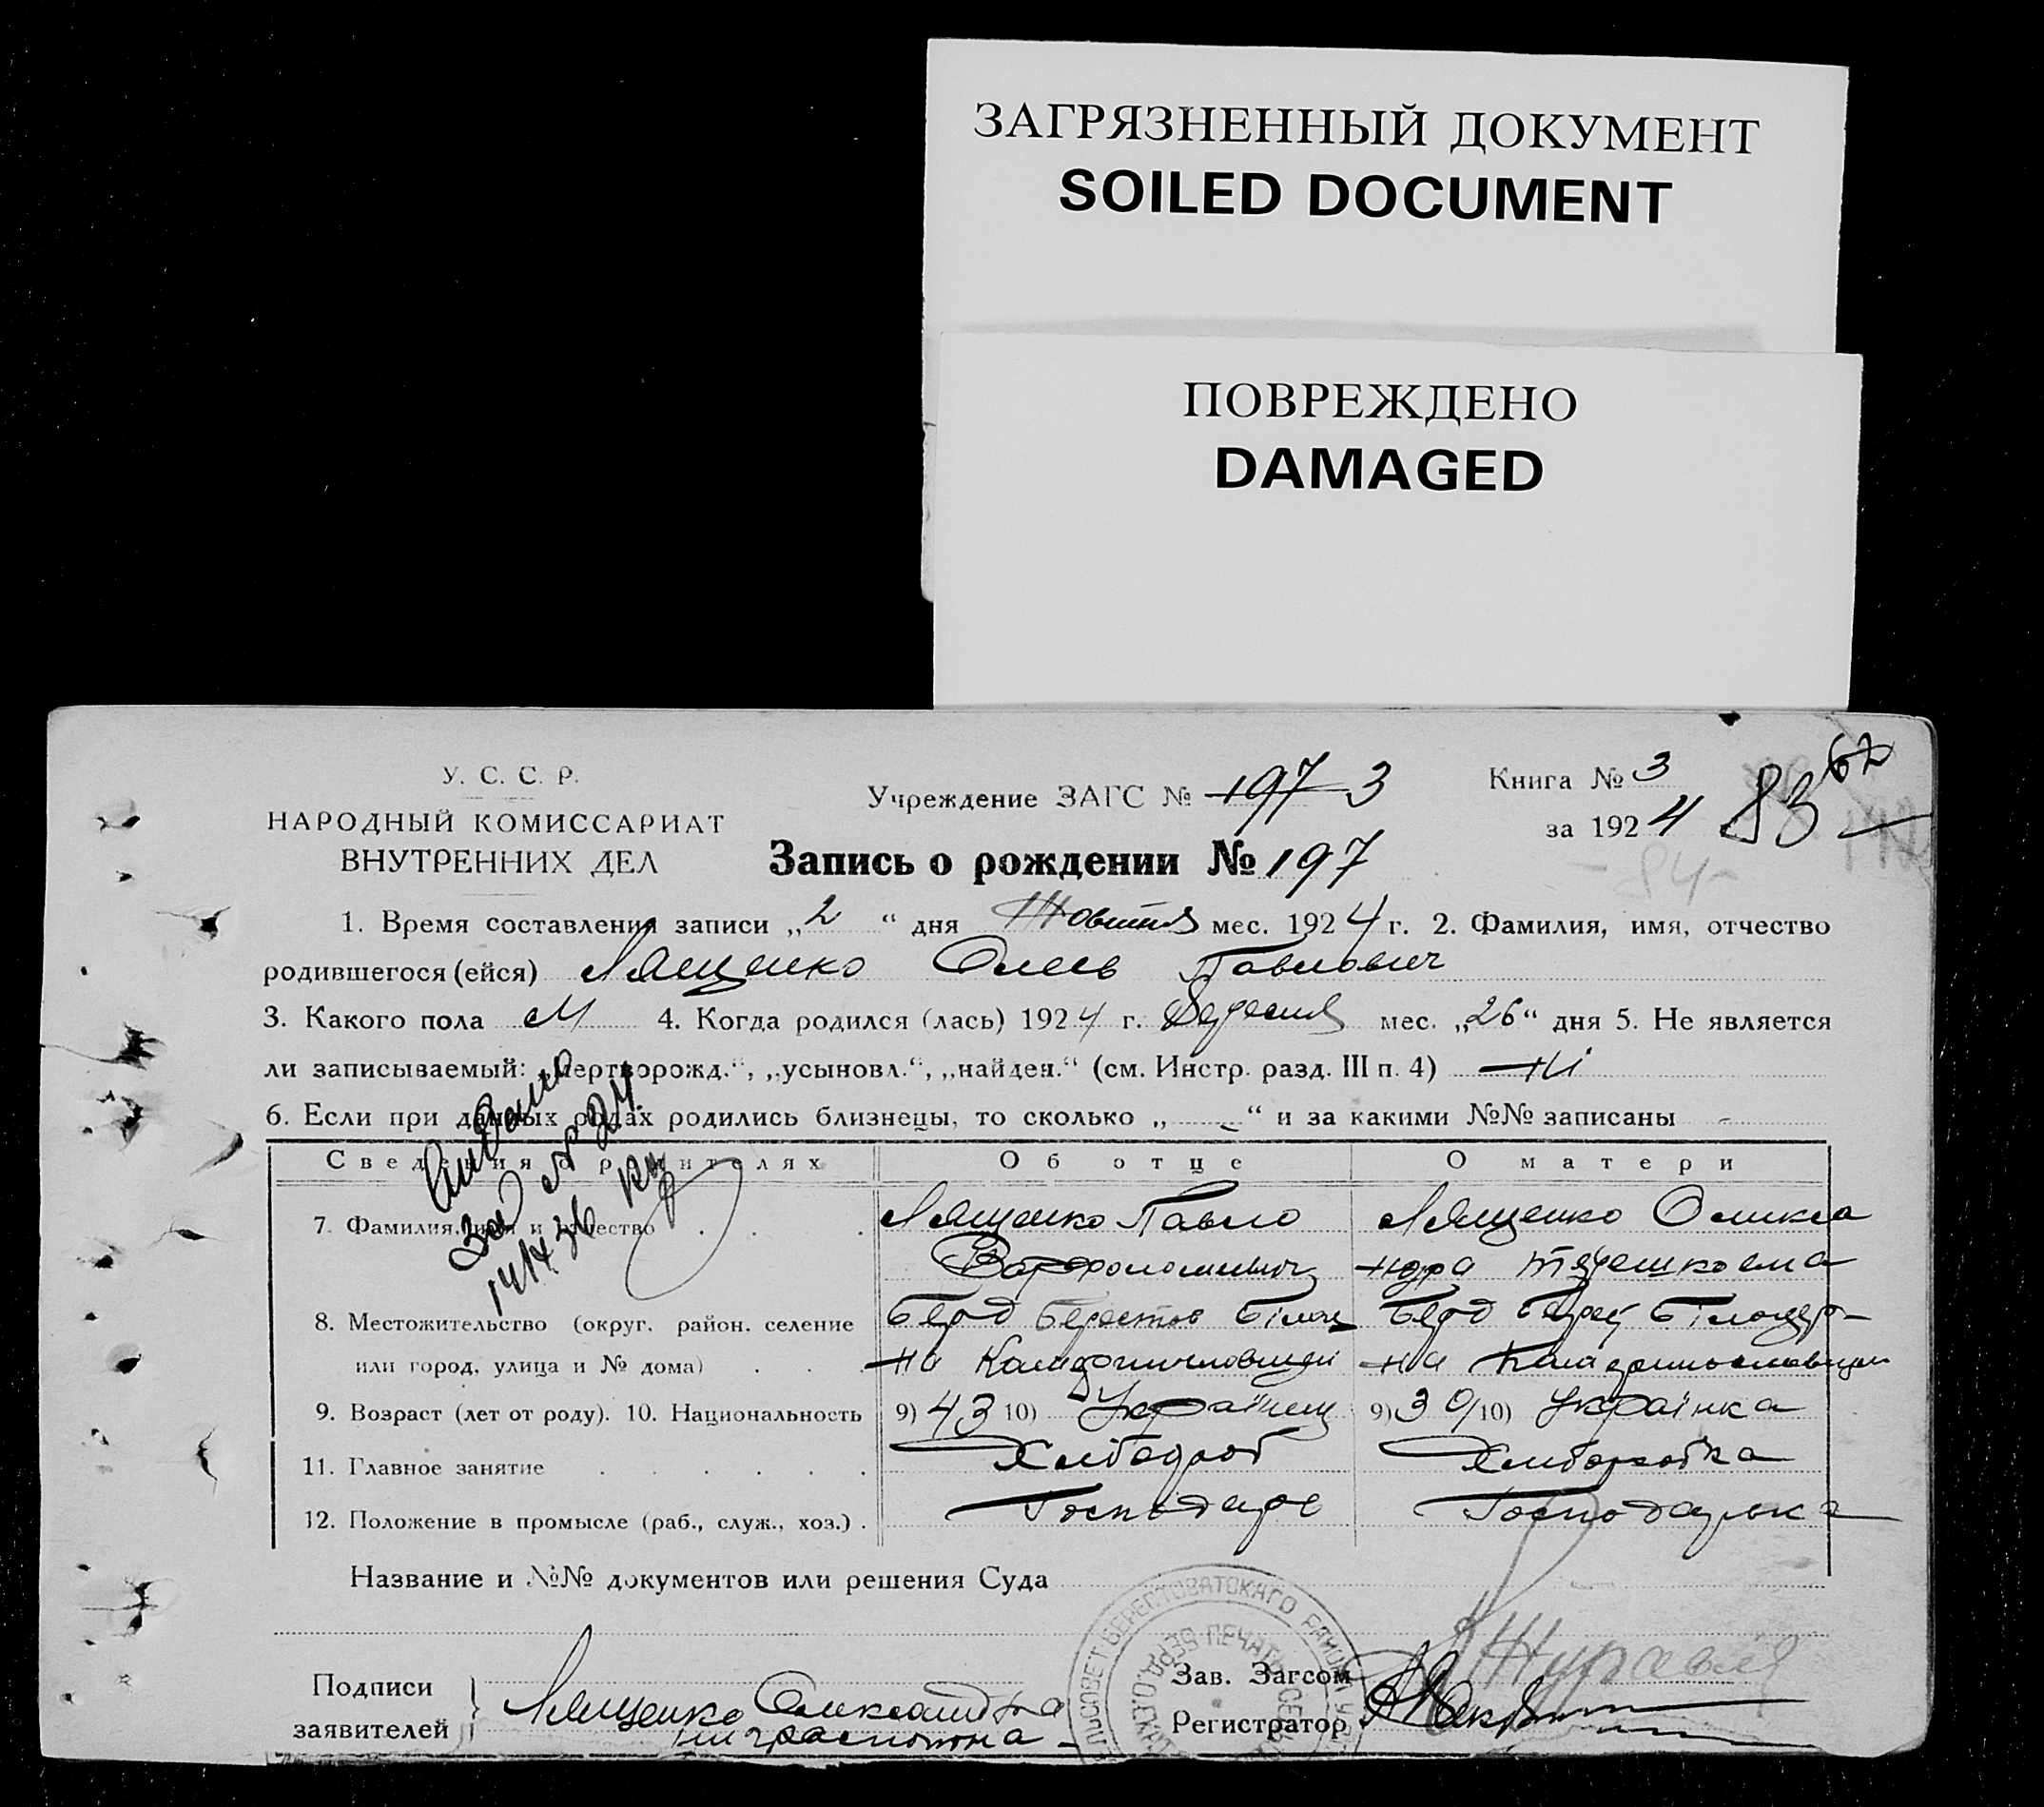 ЗАГРЯЗНЕННЫЙ ДОКУМЕНТ
SOILED DOCUMENT
ПОВРЕЖДЕНО
DAMAGED
У. С. С. Р.
НАРОДНЫЙ КОМИССАРИАТ
ВНУТРЕННИХ ДЕЛ
Учреждение ЗАГС № 197 3
Книга № 3
за 1924
83
67
-84-
Запись о рождении № 197
1. Время составления записи „2“ дня Жовтня мес. 1924 г. 2. Фамилия, имя, отчество
родившегося (ейся) Лященко Олесь Павлович
3. Какого пола М 4. Когда родился (лась) 1924 г. Вересня мес. „26“ дня 5. Не является
ли записываемый: „мертворожд.“, „усыновл.“, „найден.“ (см. Инстр. разд. III п. 4) Ні
6. Если при данных родах родились близнецы, то сколько „-“ и за какими №№ записаны -
Сведения о родителях Об отце О матери
7. Фамилия, имя и отчество Лященко Павло Лященко Олекса
ндра
8. Местожительство (округ. район. селение
или город, улица и № дома) на на
9. Возраст (лет от роду). 10. Национальность 9) 43 10) Українец 9) 30 10) Українка
11. Главное занятие Хлібороб Хліборобка
12. Положение в промысле (раб., служ., хоз.) Господарь Господарька
За № 24
Название и №№ документов или решения Суда
Подписи
заявителей Лященко Олександра
Зав. Загсом
Регистратор